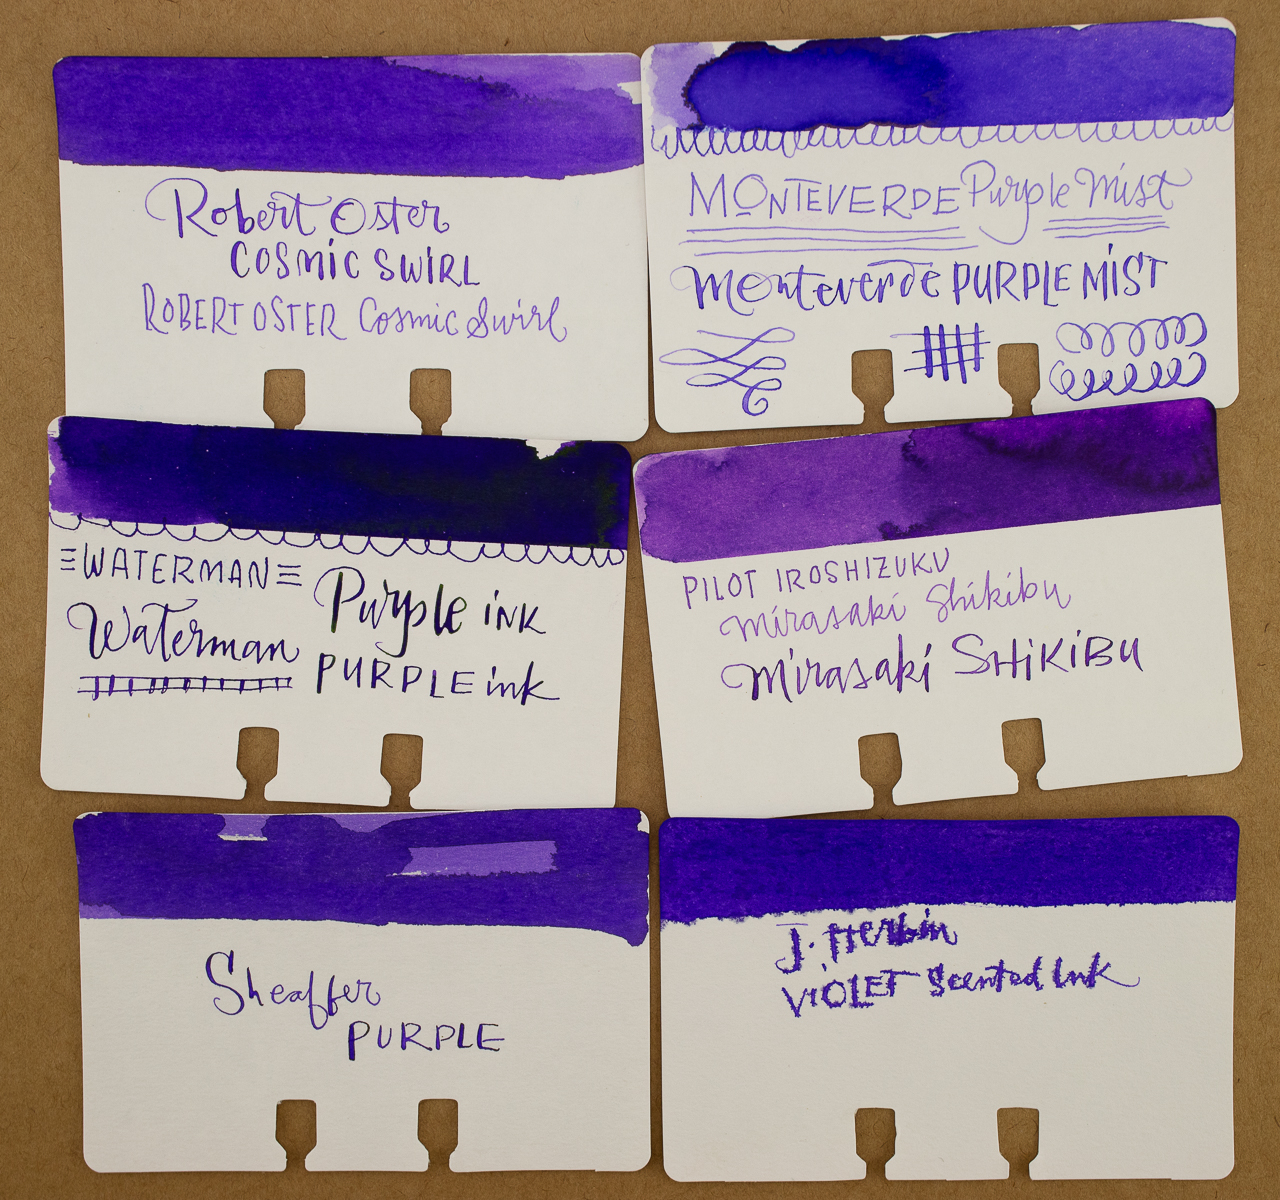 Robert Oster
COSMIC SWIRL
ROBERT OSTER Cosmic Swirl
MONTEVERDE Purple Mist
Monteverde PURPLE MIST
WATERMAN
Waterman
Purple iNK
PURPLE ink
PILOT IROSHIZUKU
Mirasaki Shikibu
Mirasaki SHiKiBU
Sheaffer
PURPLE
J. Herbin
ViOLET Scented Ink